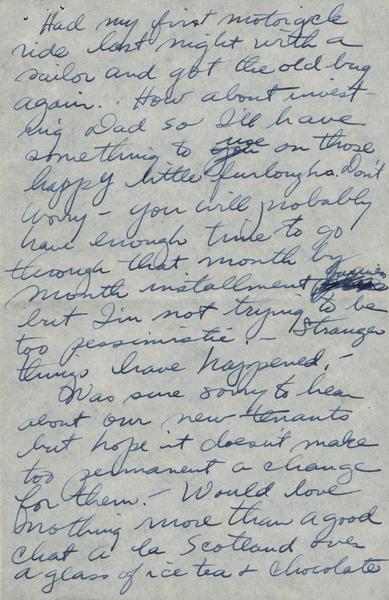 Had my first motorcycle
ride last night with a
sailor and got the old bug
again. How about invest-
ing Dad so I'll have
something to use on those
happy little furloughs. Don't
worry - you will probably
have enough time to go
through that month by
month installment business
but I'm not trying to be
too pessimistic! - Stranger
things have happened! -
Was sure sorry to hear
about our new tenants
but hope it doesn't make
too permanent a change
for them. - Would love
nothing more than a good
chat a la Scotland over
a glass of ice tea & chocolate